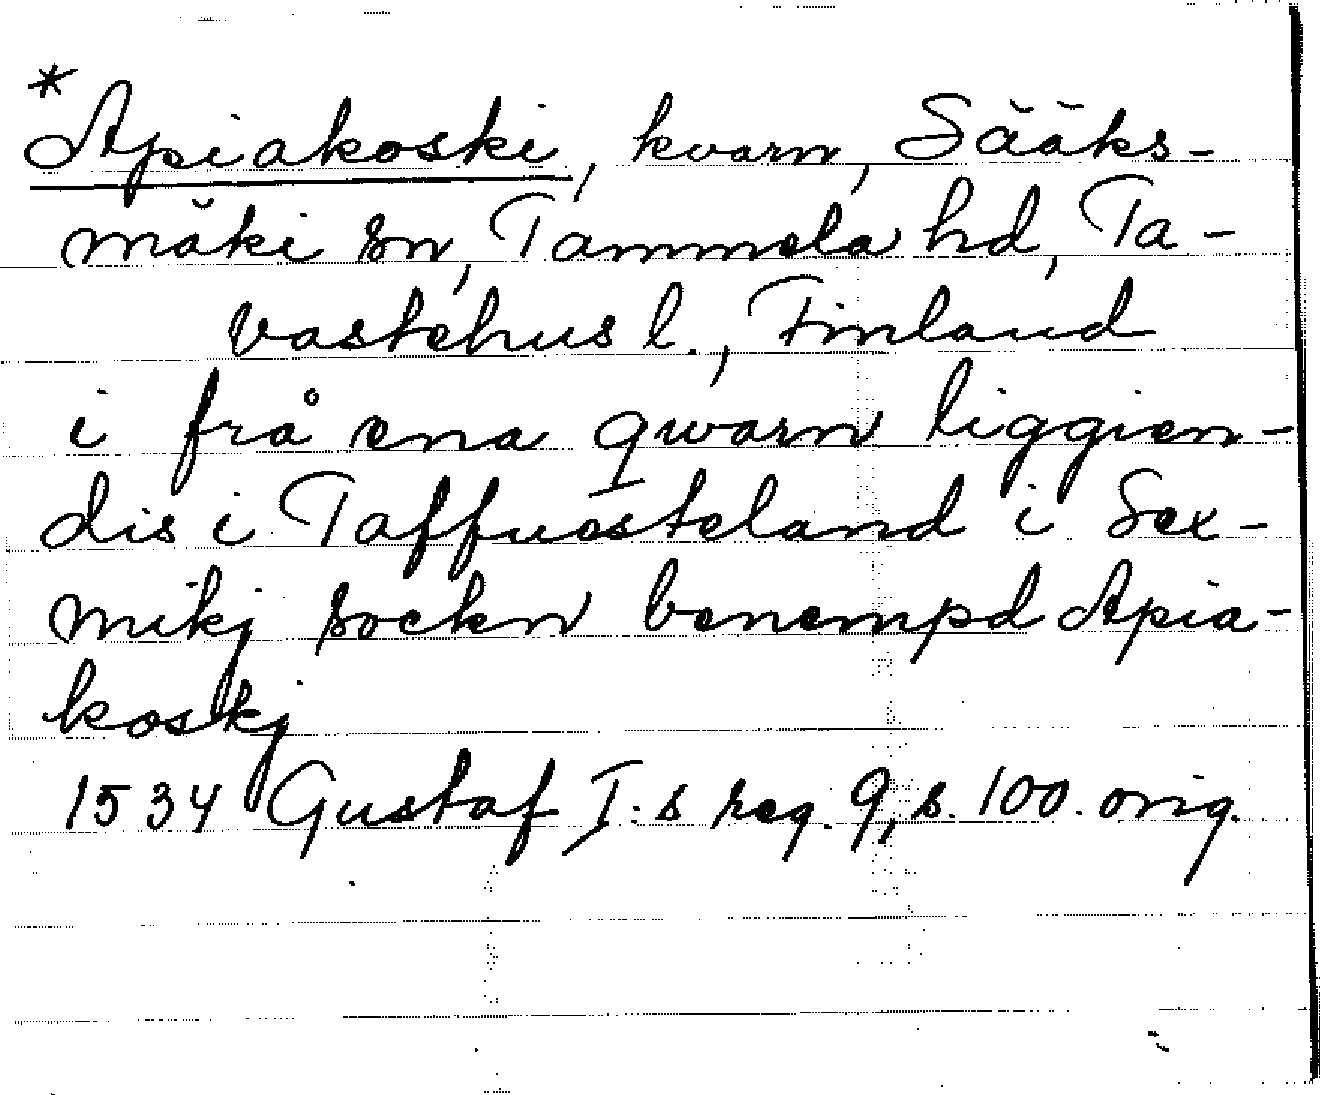 *Apiakoski, kvarn, Sääks-
mäki sn, Tammela hd, Ta-
vastehus l., Finland
i frå ena qwarn liggien-
dis i Taffuesteland i Sex-
mikj sockn benempd Apia-
koskj
1534 Gustaf I:s reg. 9, s. 100. orig.